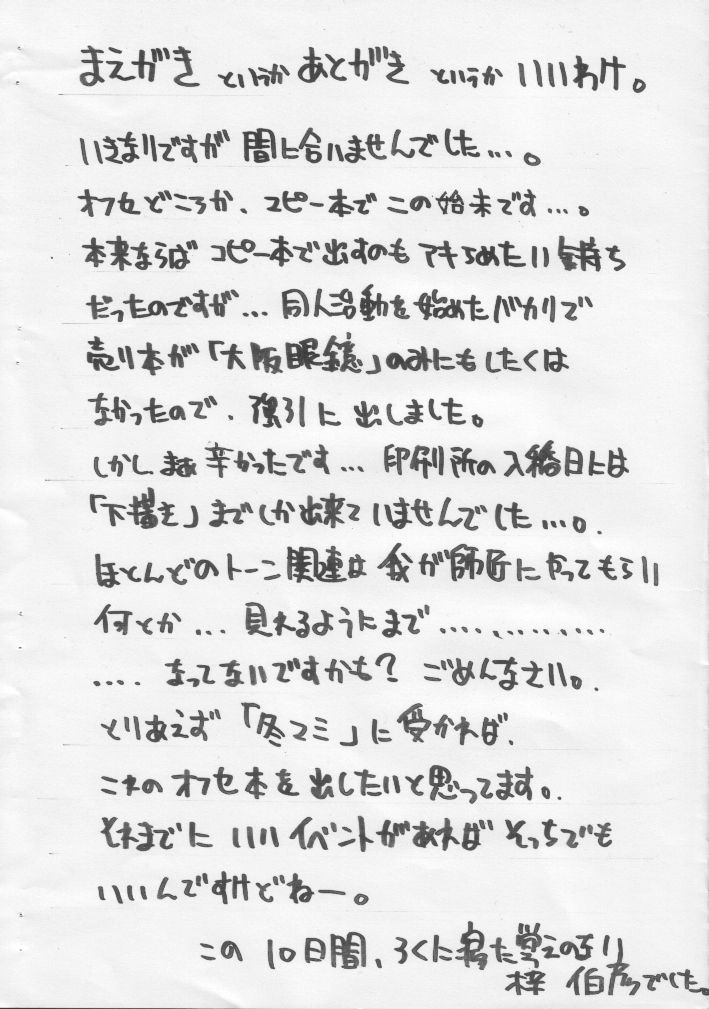 まえがき というか あとがき というか いいわけ。
いきなりですが 間に合いませんでした…。
オフセどころか、コピー本で この始末です…。
本来ならば コピー本で出すのも アキらめたい 気持ち
だったのですが… 同人活動を始めたバカリで
売り本が「大阪眼鏡」のみにもしたくは
なかったので、強引に 出しました。
しかし、まぁ 辛かったです… 印刷所の入稿日には
「下描き」までしか出来ていませんでした…。
ほとんどのトーン関連は 我が師匠に やってもらい
何とか… 見れるようにまで……………
…. なってないですかも? ごめんなさい。
とりあえず「冬コミ」に 受かれば、
これの オフセ本を 出したいと思ってます。
それまでに いい イベントがあれば そっちでも
いいんですけどねー。
この 10日間、ろくに寝た覚えのない
梓 伯 でした。